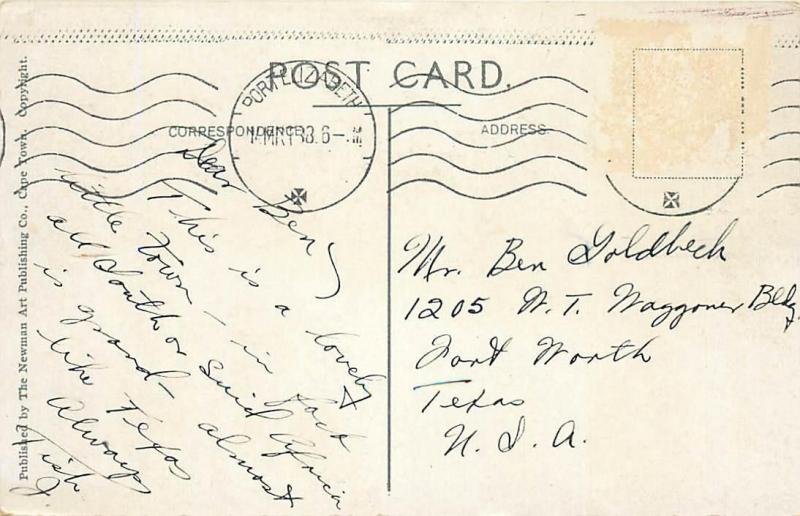 POST CARD.
CORRESPONDENCE.
ADDRESS.
PORT ELIZABETH
Published by The Newman Art Publishing Co., Cape Town. Copyright.
Dear Ben,
This is a lovely
little Town - in fact
all South Africa
is grand - almost
like Texas
Always
Mr. Ben Goldbeck
1205 W. T. Waggoner Bldg,
Fort Worth
Texas
U. S. A.